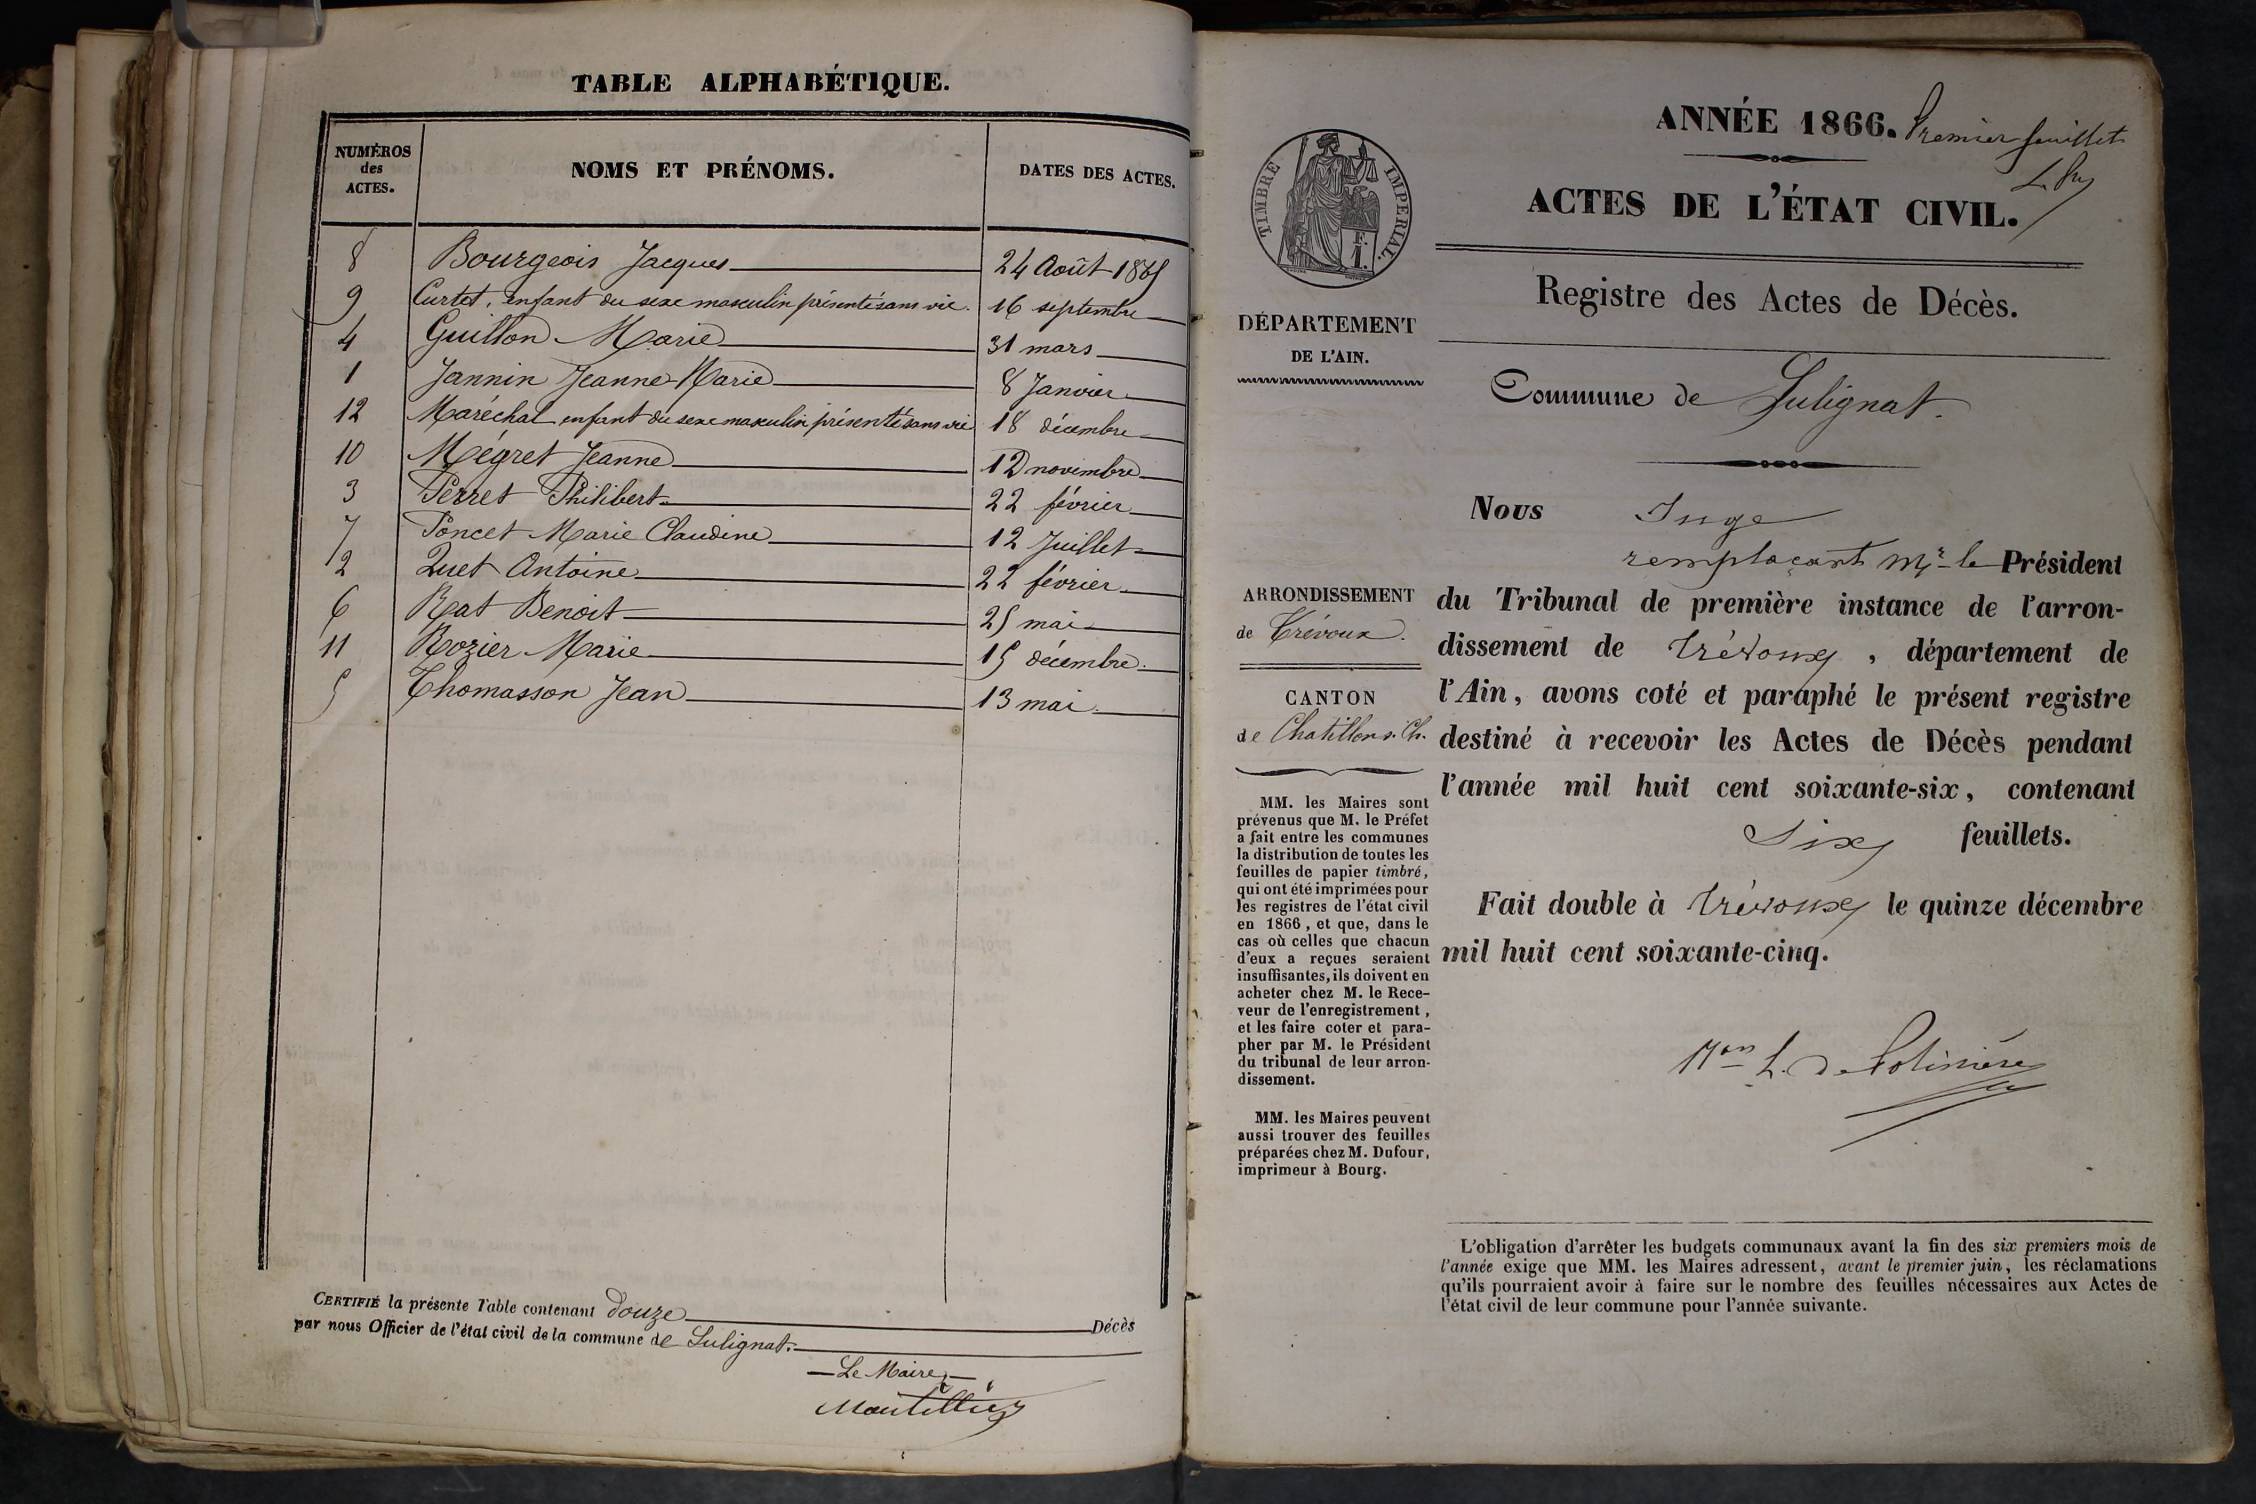 TABLE ALPHABÉTIQUE.
NUMÉROS des ACTES.
NOMS ET PRÉNOMS.
DATES DES ACTES.
8 Bourgeois Jacques 24 Août 1865
9 Curtet, enfant du sexe masculin présenté sans vie. 16 septembre
4 Guillon Marie 31 mars
1 Jannin Jeanne Marie 8 Janvier
12 Maréchal enfant du sexe masculin présenté sans vie 18 décembre
10 Mégret Jeanne 12 novembre
3 Perret Philibert 22 février
7 Poncet Marie Claudine 12 Juillet
2 Quet Antoine 22 février
6 Rat Benoit 25 mai
11 Rozier Marie 15 décembre.
5 Thomasson Jean 13 mai
CERTIFIÉ la présente Table contenant douze Décès
par nous Officier de l'état civil de la commune de Sulignat.
Le Maire
ANNÉE 1866. Premier feuillet
ACTES DE L'ÉTAT CIVIL.
Registre des Actes de Décès.
Commune de Sulignat.
TIMBRE IMPÉRIAL.
F.
1.
DÉPARTEMENT
DE L'AIN.
ARRONDISSEMENT
de Trévoux.
CANTON
de Chatillon s. Ch.
MM. les Maires sont
prévenus que M. le Préfet
a fait entre les communes
la distribution de toutes les
feuilles de papier timbré,
qui ont été imprimées pour
les registres de l'état civil
en 1866, et que, dans le
cas où celles que chacun
d'eux a reçues seraient
insuffisantes, ils doivent en
acheter chez M. le Rece-
veur de l'enregistrement,
et les faire coter et para-
pher par M. le Président
du tribunal de leur arron-
dissement.
MM. les Maires peuvent
aussi trouver des feuilles
préparées chez M. Dufour,
imprimeur à Bourg.
Nous Juge
remplaçant Mr le Président
du Tribunal de première instance de l'arron-
dissement de Trévoux, département de
l'Ain, avons coté et paraphé le présent registre
destiné à recevoir les Actes de Décès pendant
l'année mil huit cent soixante-six, contenant
six feuillets.
Fait double à Trévoux le quinze décembre
mil huit cent soixante-cinq.
L'obligation d'arrêter les budgets communaux avant la fin des six premiers mois de
l'année exige que MM. les Maires adressent, avant le premier juin, les réclamations
qu'ils pourraient avoir à faire sur le nombre des feuilles nécessaires aux Actes de
l'état civil de leur commune pour l'année suivante.